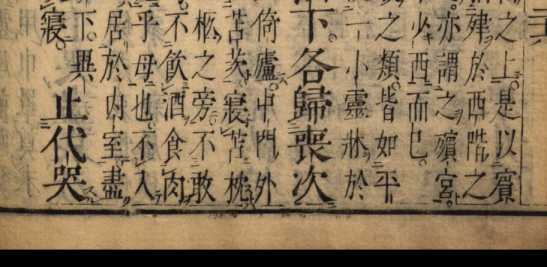 之上是以賓
建於西階之
亦謂之殯宮
少西而已。
之類皆如平
一小靈牀於
下各歸喪次
倚廬中門外
苫次寢苫枕
柩之旁不敢
不飲酒食肉
乎母也不入
居於内室盡
下。異
寢。
止代哭